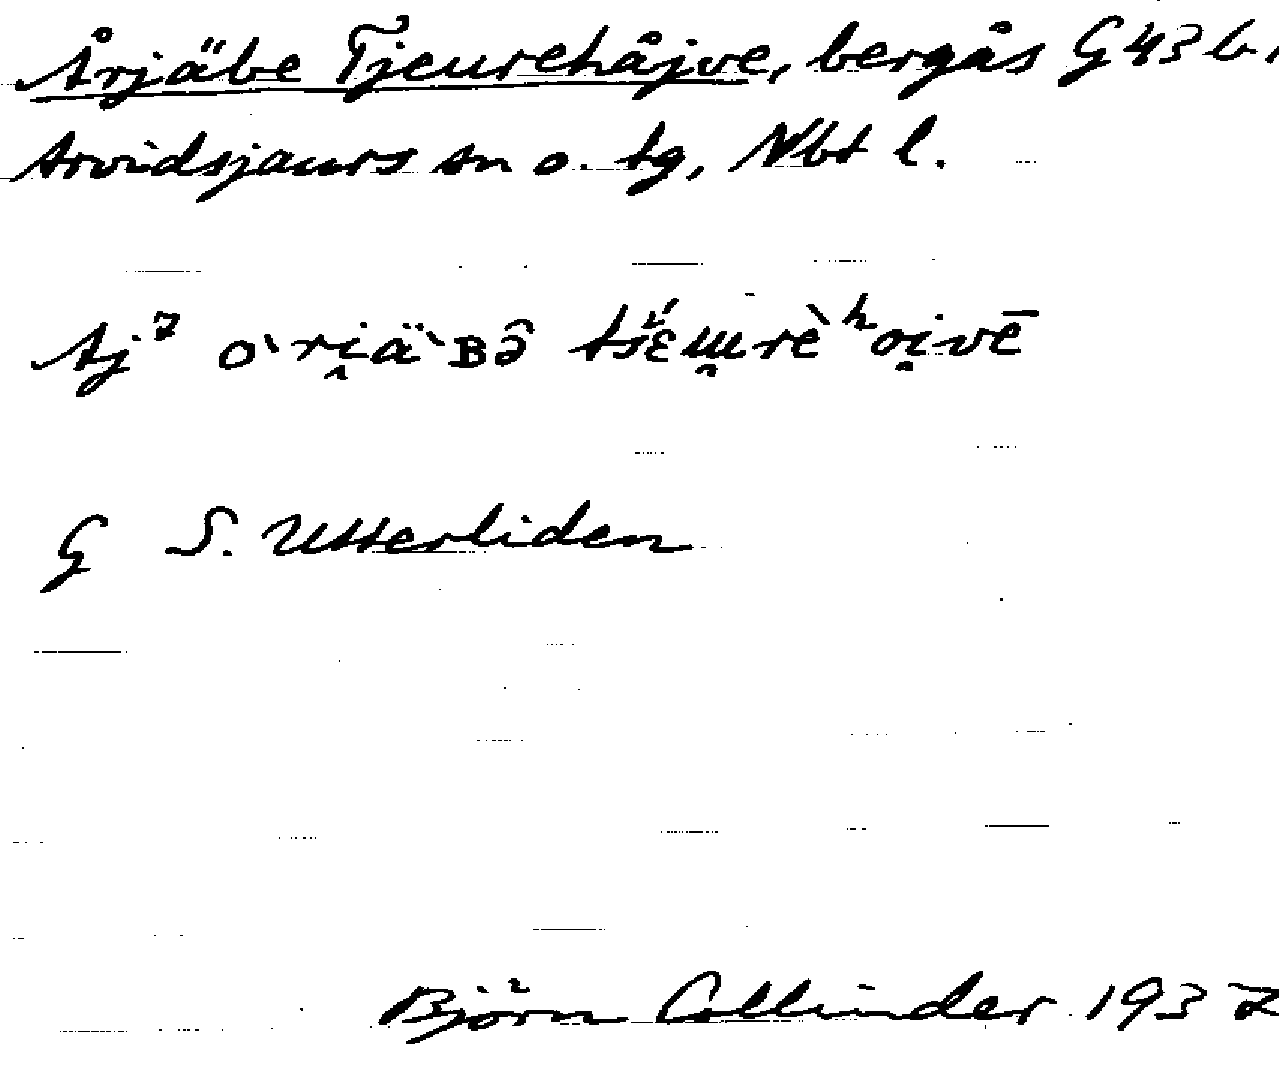 Årjäbe Tjeurehåjve, bergås G 43 b.,
Arvidsjaurs sn o. tg, Nbt l.
Aj⁷ o`ri̯ä`ʙə̑ tśɛ́ɯ̯rè ʰoi̯vē
G S. Utterliden
Björn Collinder 1937